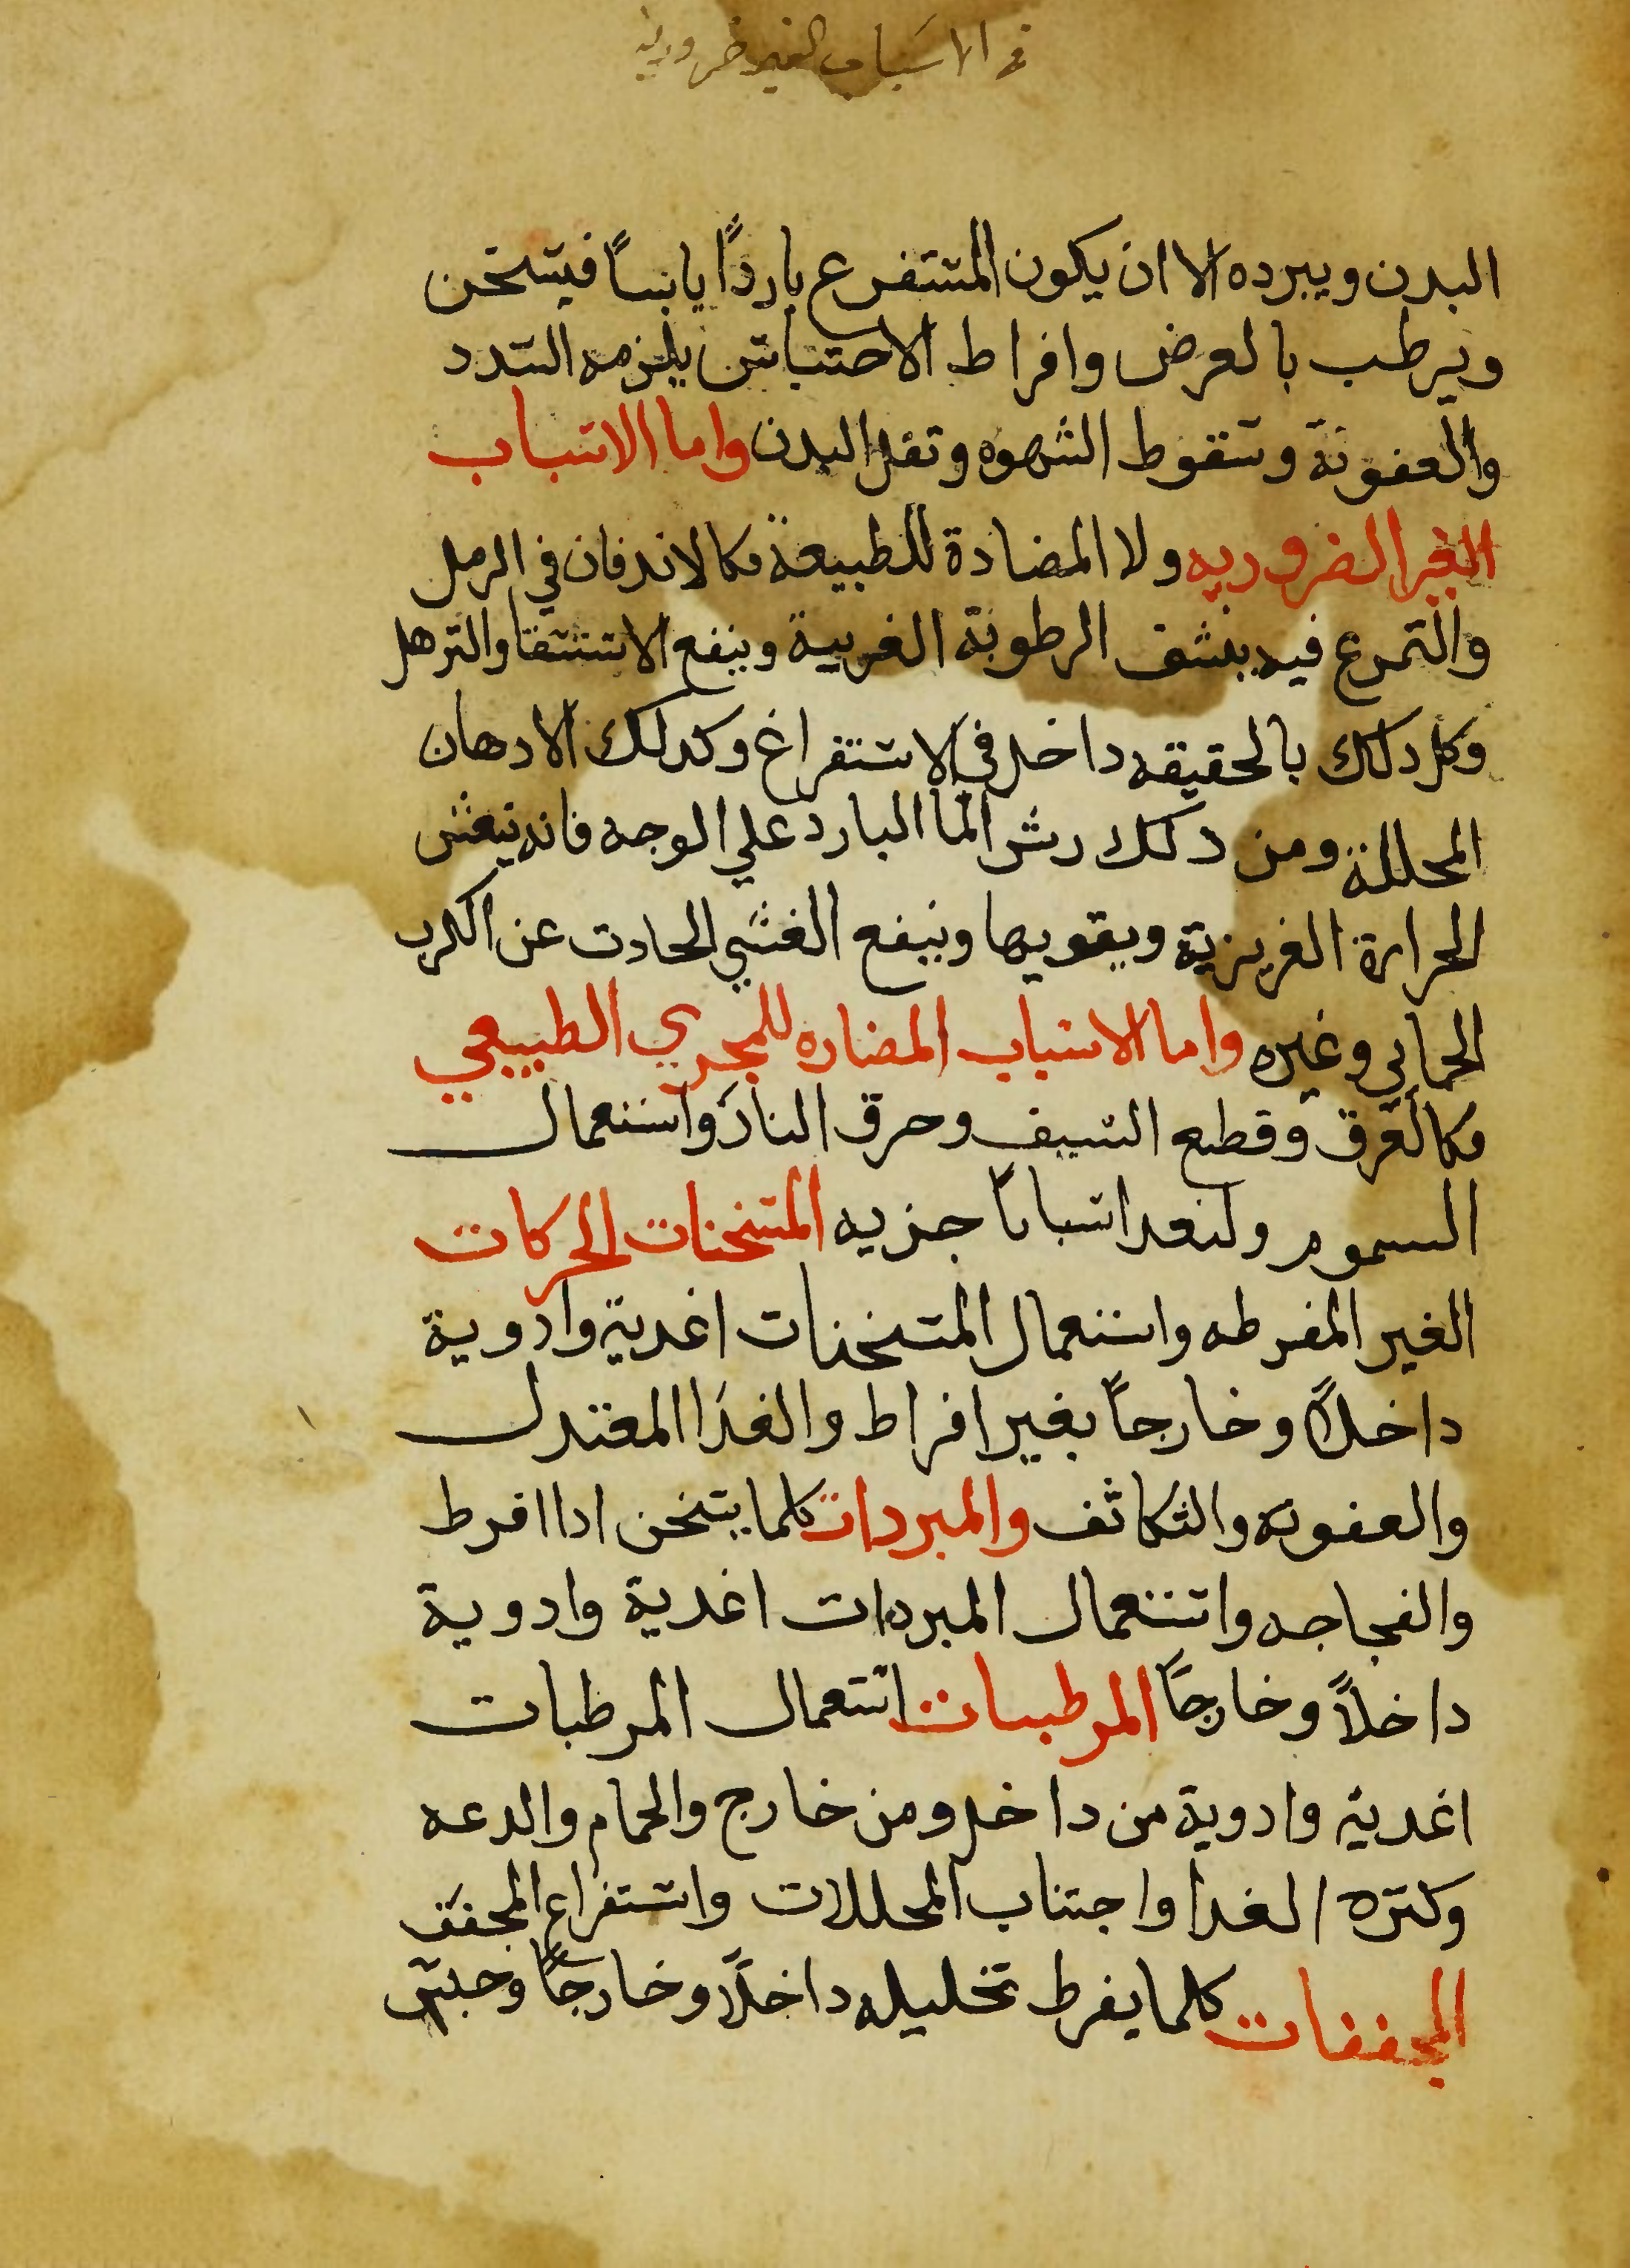 في الاسباب الغير ضروريه
البدن ويبرده الا ان يكون المستفرع باردًا يابسًا فيسخن
ويرطب بالعرض وافراط الاحتباس يلزمه السدد
والعفونة وسقوط الشهوه وتقل البدن واما الاسباب
الغير الضروريه ولا المضادة للطبيعة فكالاندفان في الرمل
والتمرع فيه ينشف الرطوبة الغريبة وينفع الاستسقا والترهل
وكل دلك بالحقيقه داخل في الاستفراغ وكدلك الادهان
المحللة ومن دلك رش الما البارد علي الوجه فانه ينعش
الحرارة الغريزية ويقويها وينفع الغشي الحادت عن الكرب
الحمايي وغيره واما الاسباب المضاره للمجري الطبيعي
فكالغرق وقطع السيف وحرق النار واستعمال
السموم ولنعد اسبابًا جزيه المسخنات الحركات
الغير المفرطه واستعمال المسخنات اغدية وادوية
داخلاً وخارجاً بغير افراط والغدا المعتدل
والعفونه والتكاثف والمبردات كلما يسخن ادا افرط
والفجاجه واستعمال المبردات اغدية وادوية
داخلاً وخارجًا المرطبات استعمال المرطبات
اغدية وادوية من داخل ومن خارج والحمام والدعه
وكتره الغدا واجتناب المحللات واستفراع المجفف
المجففات كلما يفرط تحليله داخلاً وخارجًا وحبس